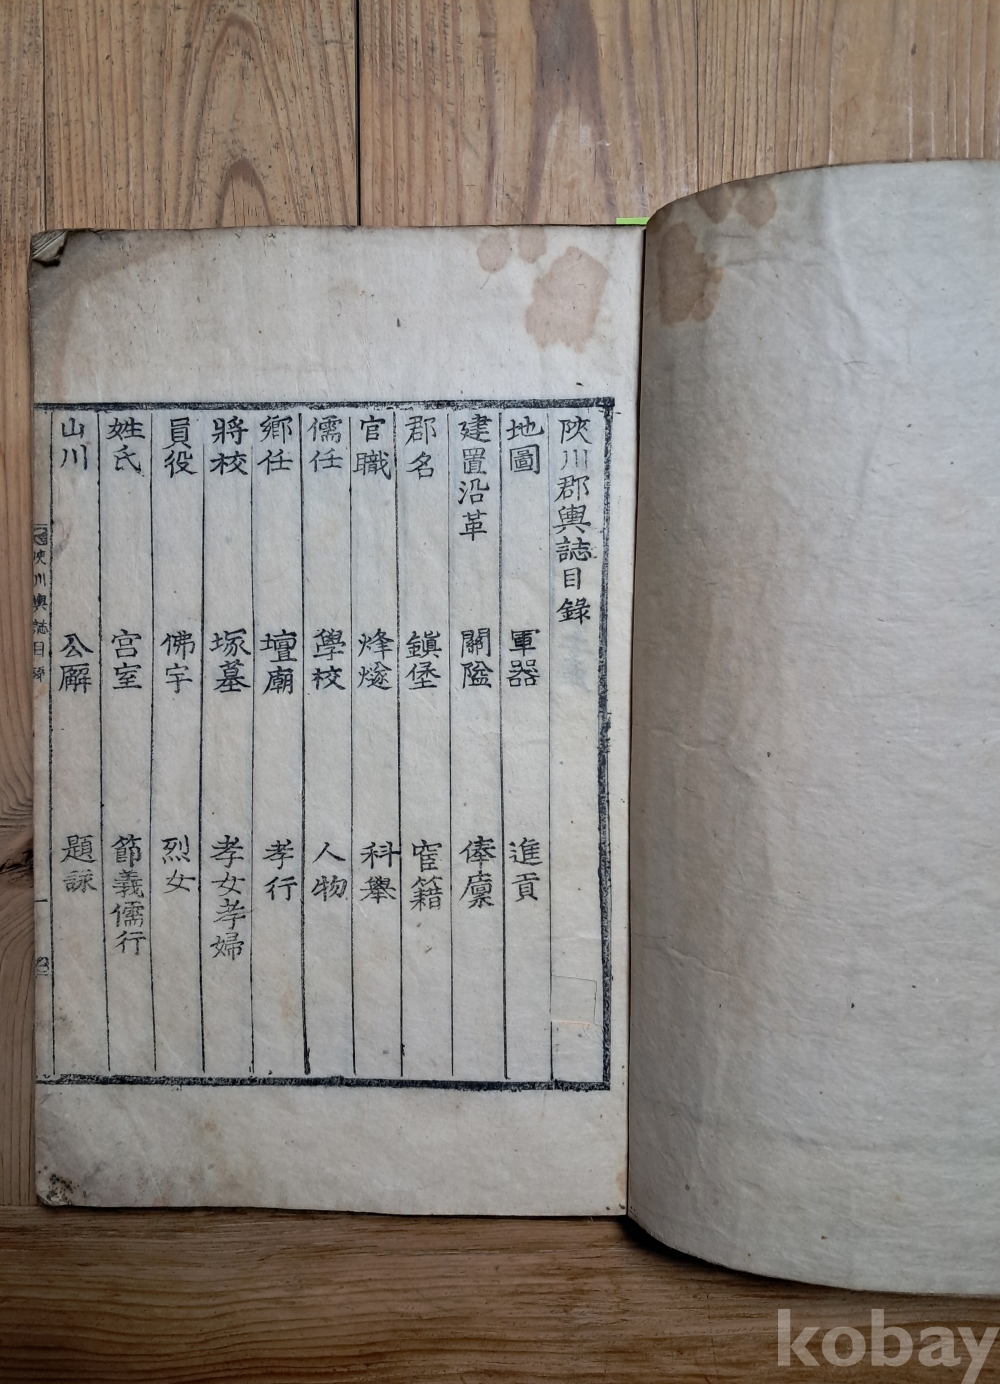 陜川郡輿誌目錄
地圖 軍器 進貢
建置沿革 關隘 俸廩
郡名 鎭堡 宦籍
官職 烽燧 科擧
儒任 學校 人物
鄕任 壇廟 孝行
將校 塚墓 孝女孝婦
員役 佛宇 烈女
姓氏 宮室 節義儒行
山川 公廨 題詠
陜川輿誌目錄 一
kobay